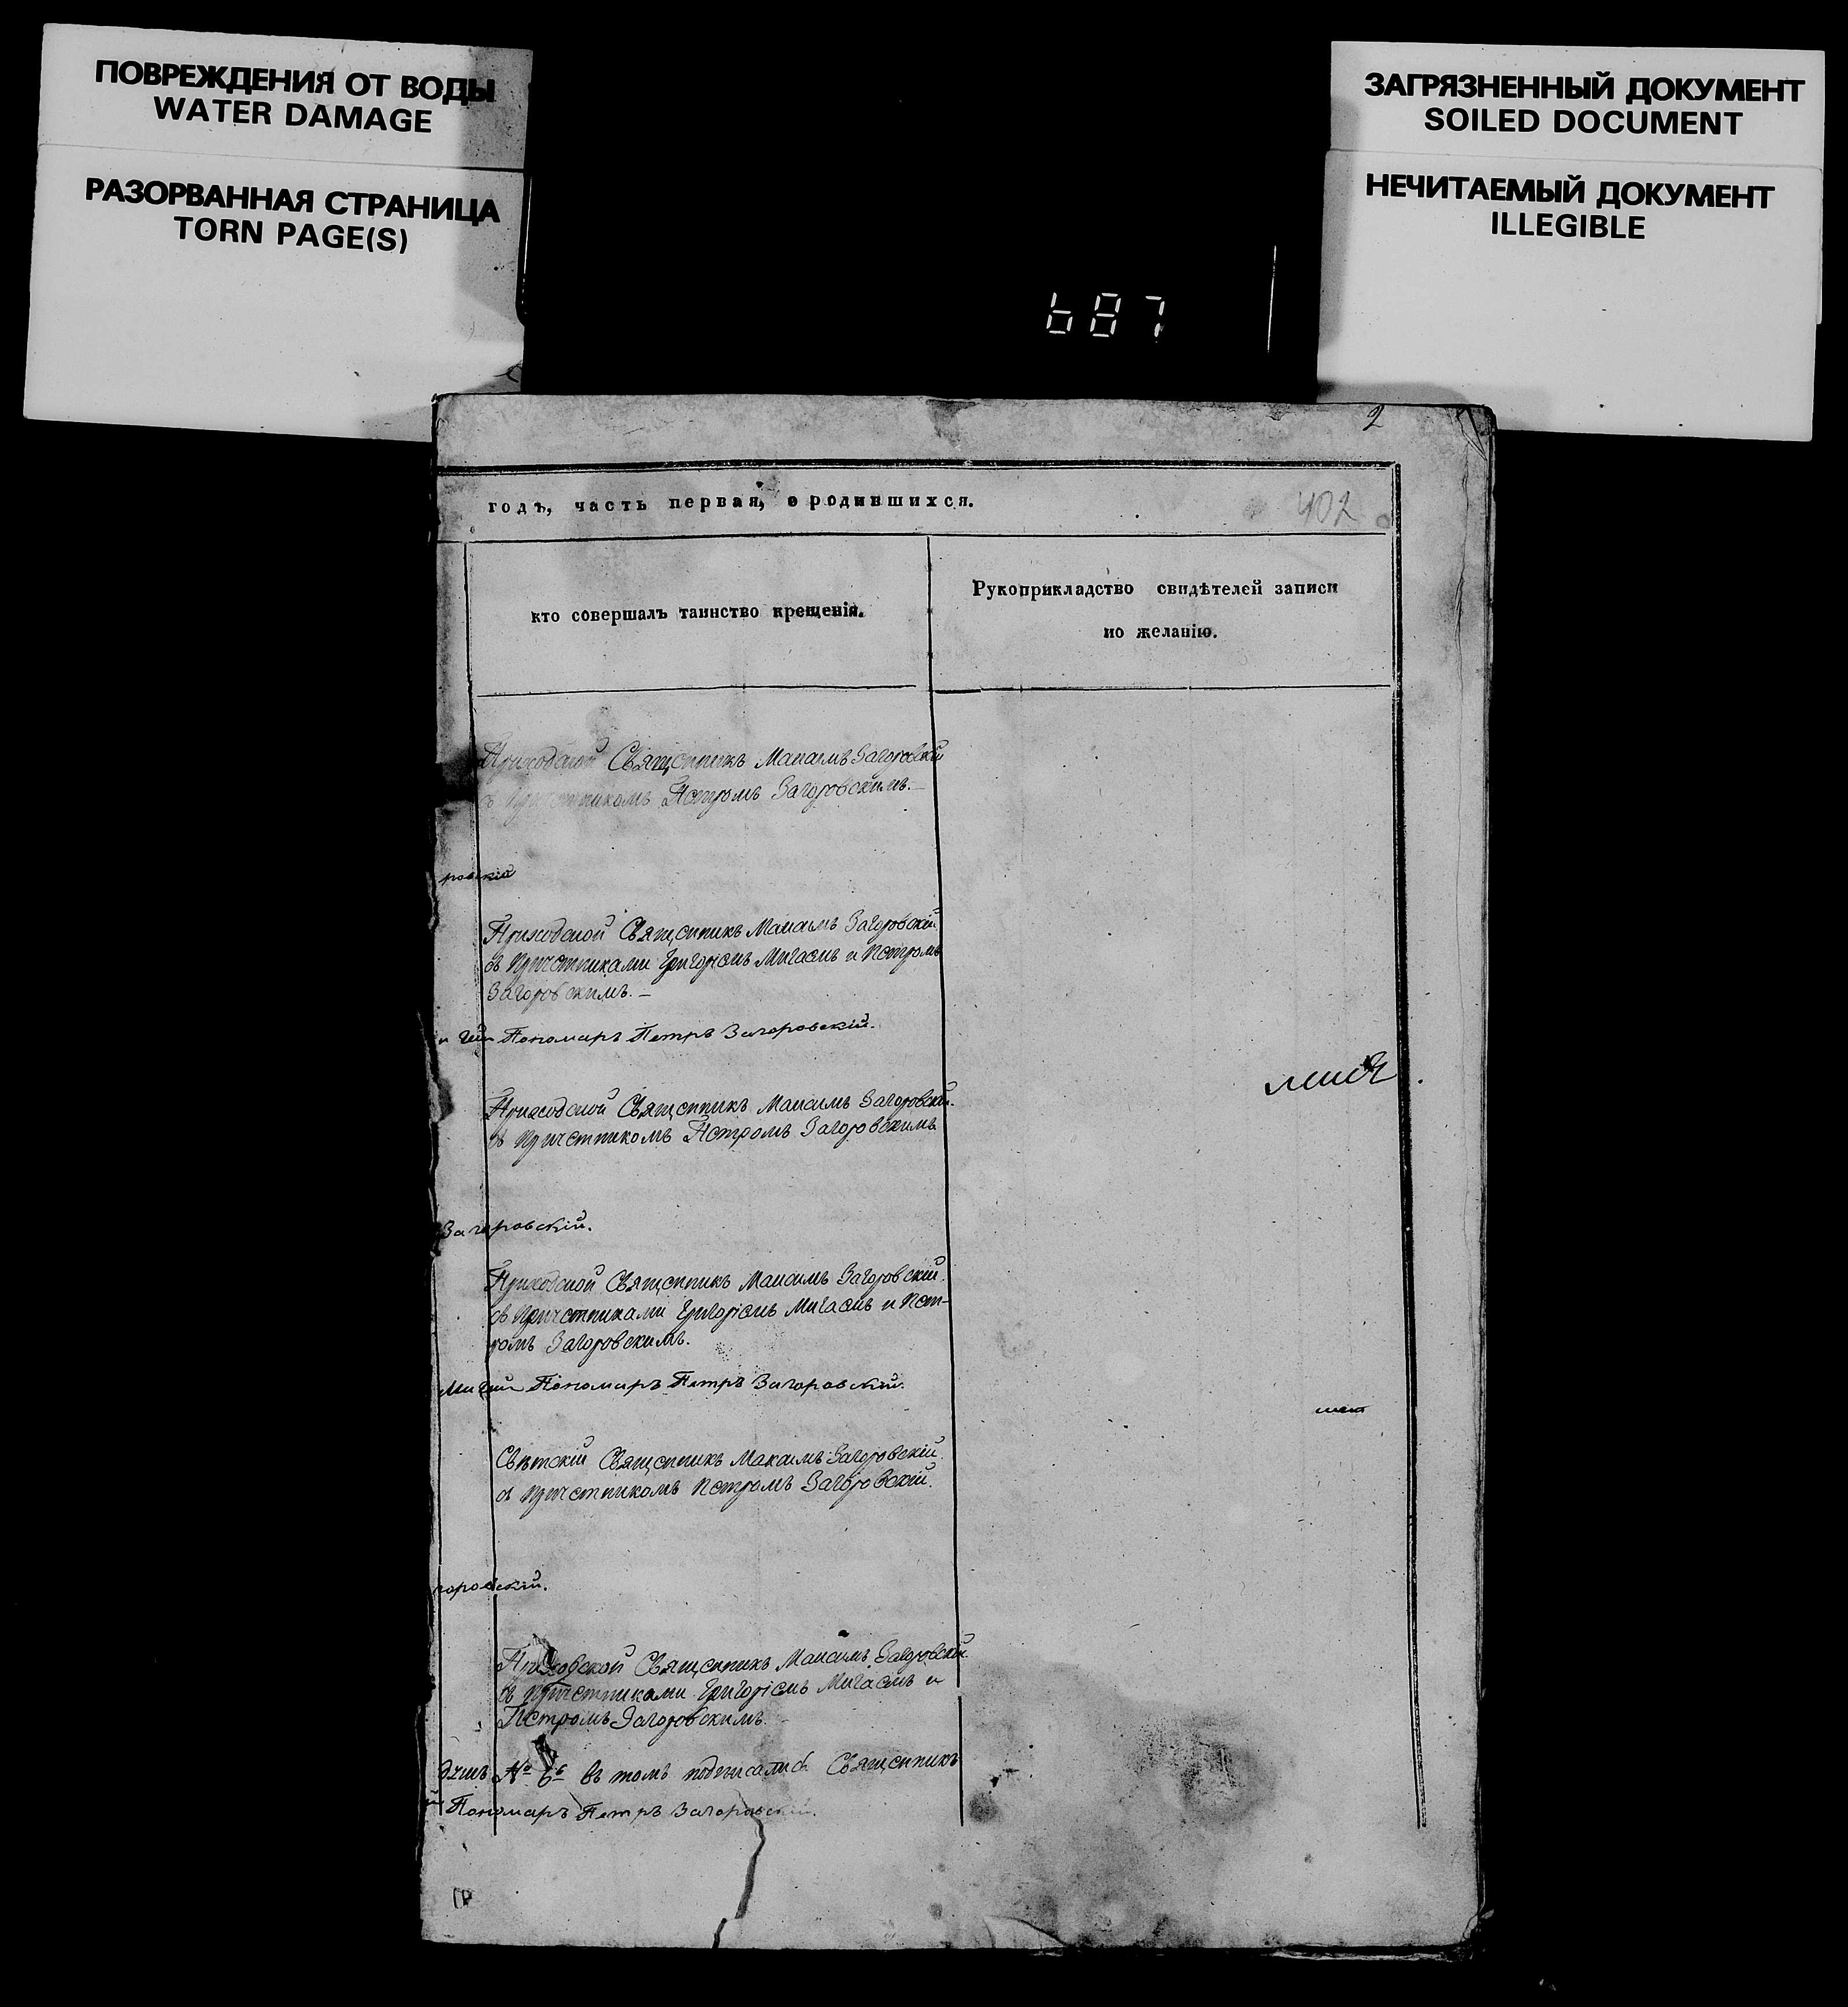 ПОВРЕЖДЕНИЯ ОТ ВОДЫ
WATER DAMAGE
РАЗОРВАННАЯ СТРАНИЦА
TORN PAGE(S)
ЗАГРЯЗНЕННЫЙ ДОКУМЕНТ
SOILED DOCUMENT
НЕЧИТАЕМЫЙ ДОКУМЕНТ
ILLEGIBLE
687
2
годъ, часть первая, о родившихся.
402
кто совершалъ таинство крещенія.
Рукоприкладство свидѣтелей записи
по желанію.
Приходской Священникъ Максимъ Загоровскій
съ Причетникомъ Петромъ Загоровскимъ.—
ровскій
Приходской Священникъ Максимъ Загоровскій
съ Причетниками Григоріемъ Мигаемъ и Петромъ
Загоровскимъ.—
Пономарь Петръ Загоровскій.
Приходской Священникъ Максимъ Загоровскій.
съ Причетникомъ Петромъ Загоровскимъ
Загоровскій.
Приходской Священникъ Максимъ Загоровскій.
съ Причетниками Григоріемъ Мигаемъ и Пет-
ромъ Загоровскимъ.
Пономарь Петръ Загоровскій.
Священникъ Максимъ Загоровскій.
съ Причетникомъ Петромъ Загоровскій.
горовскій.
Приходской Священникъ Максимъ Загоровскій
съ Причетниками Григоріемъ Мигаемъ и
Петромъ Загоровскимъ.
№ 6й въ томъ подписались Священникъ
й Пономарь Петръ Загоровскій.